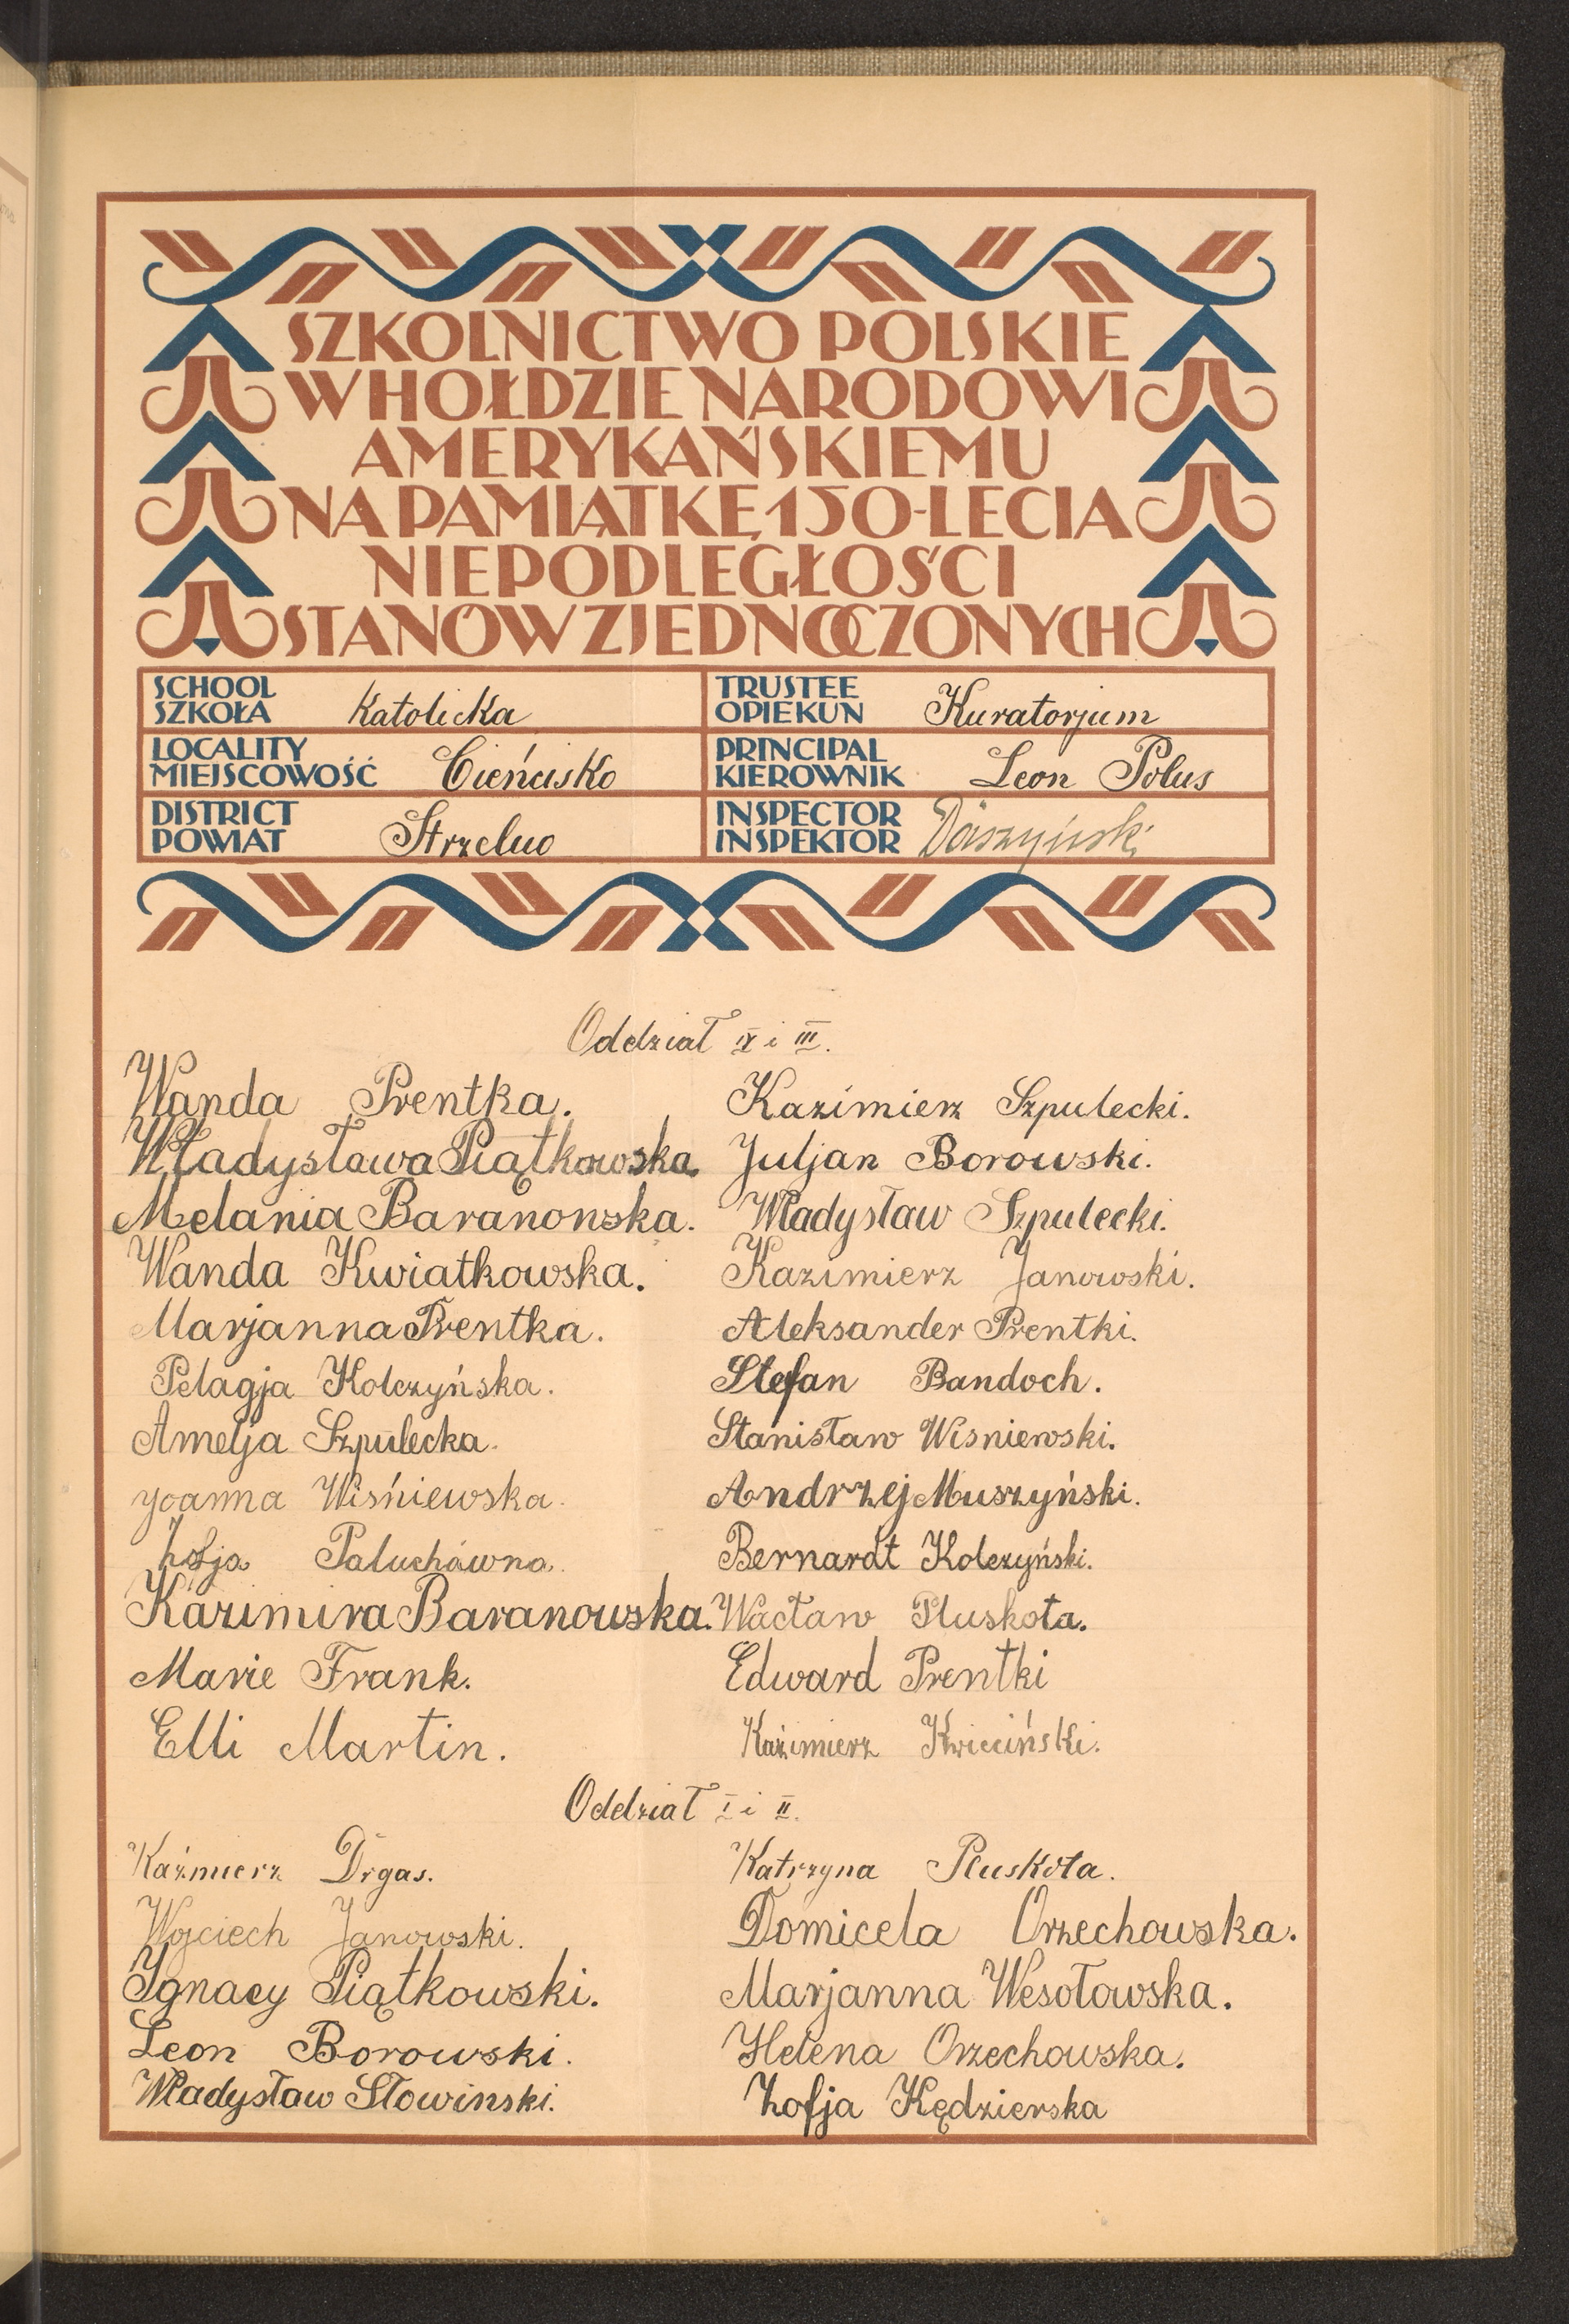 SZKOLNICTWO POLSKIE
W HOŁDZIE NARODOWI
AMERYKAŃSKIEMU
NA PAMIĄTKĘ 150-LECIA
NIEPODLEGŁOŚCI
STANÓW ZJEDNOCZONYCH
SCHOOL
SZKOŁA Katolicka
TRUSTEE
OPIEKUN Kuratorjum
LOCALITY
MIEJSCOWOŚĆ Cieńcisko
PRINCIPAL
KIEROWNIK Leon Polus
DISTRICT
POWIAT Strzelno
INSPECTOR
INSPEKTOR Daszyński
Oddział IV i III.
Wanda Prentka.
Władysława Piątkowska.
Melania Baranonska.
Wanda Kwiatkowska.
Marjanna Prentka.
Pelagja Kolczyńska.
Amelja Szpulecka.
Joanna Wiśniewska.
Zofja Paluchówna.
Kazimira Baranowska.
Marie Frank.
Elli Martin.
Kazimierz Szpulecki.
Juljan Borowski.
Władysław Szpulecki.
Kazimierz Janowski.
Aleksander Prentki.
Stefan Bandoch.
Stanisław Wisniewski.
Andrzej Muszyński.
Bernardt Kolczyński.
Wacław Pluskota.
Edward Prentki
Kaźimierz Kwieciński.
Oddział I i II.
Kaźmierz Drgas.
Wojciech Janowski.
Ignacy Piątkowski.
Leon Borowski.
Władysław Słowinski.
Katrzyna Pluskota.
Domicela Orzechowska.
Marjanna Wesołowska.
Helena Orzechowska.
Zofja Kędzierska